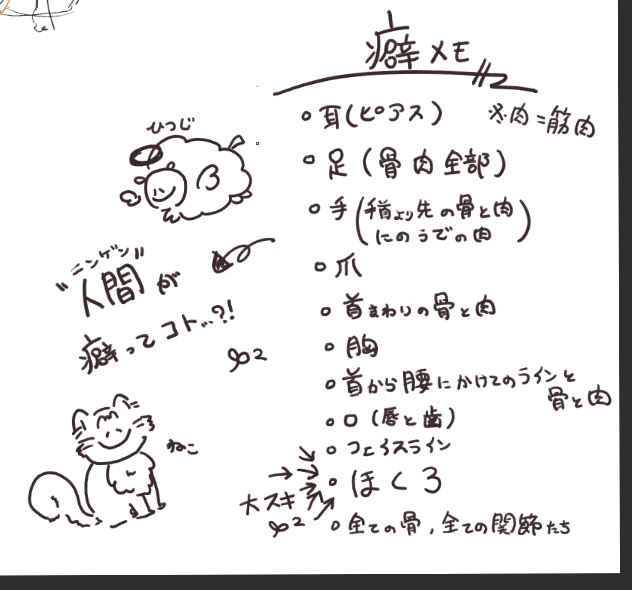 癖メモ
・耳(ピアス)
※肉=筋肉
・足(骨肉全部)
・手(手首より先の骨と肉
にのうでの肉)
・爪
・首まわりの骨と肉
・胸
・首から腰にかけてのラインと
骨と肉
・口(唇と歯)
・フェイスライン
・ほくろ
大スキ
・全ての骨,全ての関節たち
ひつじ
"ニンゲン"
人間が
癖ってコト…?!
ねこ